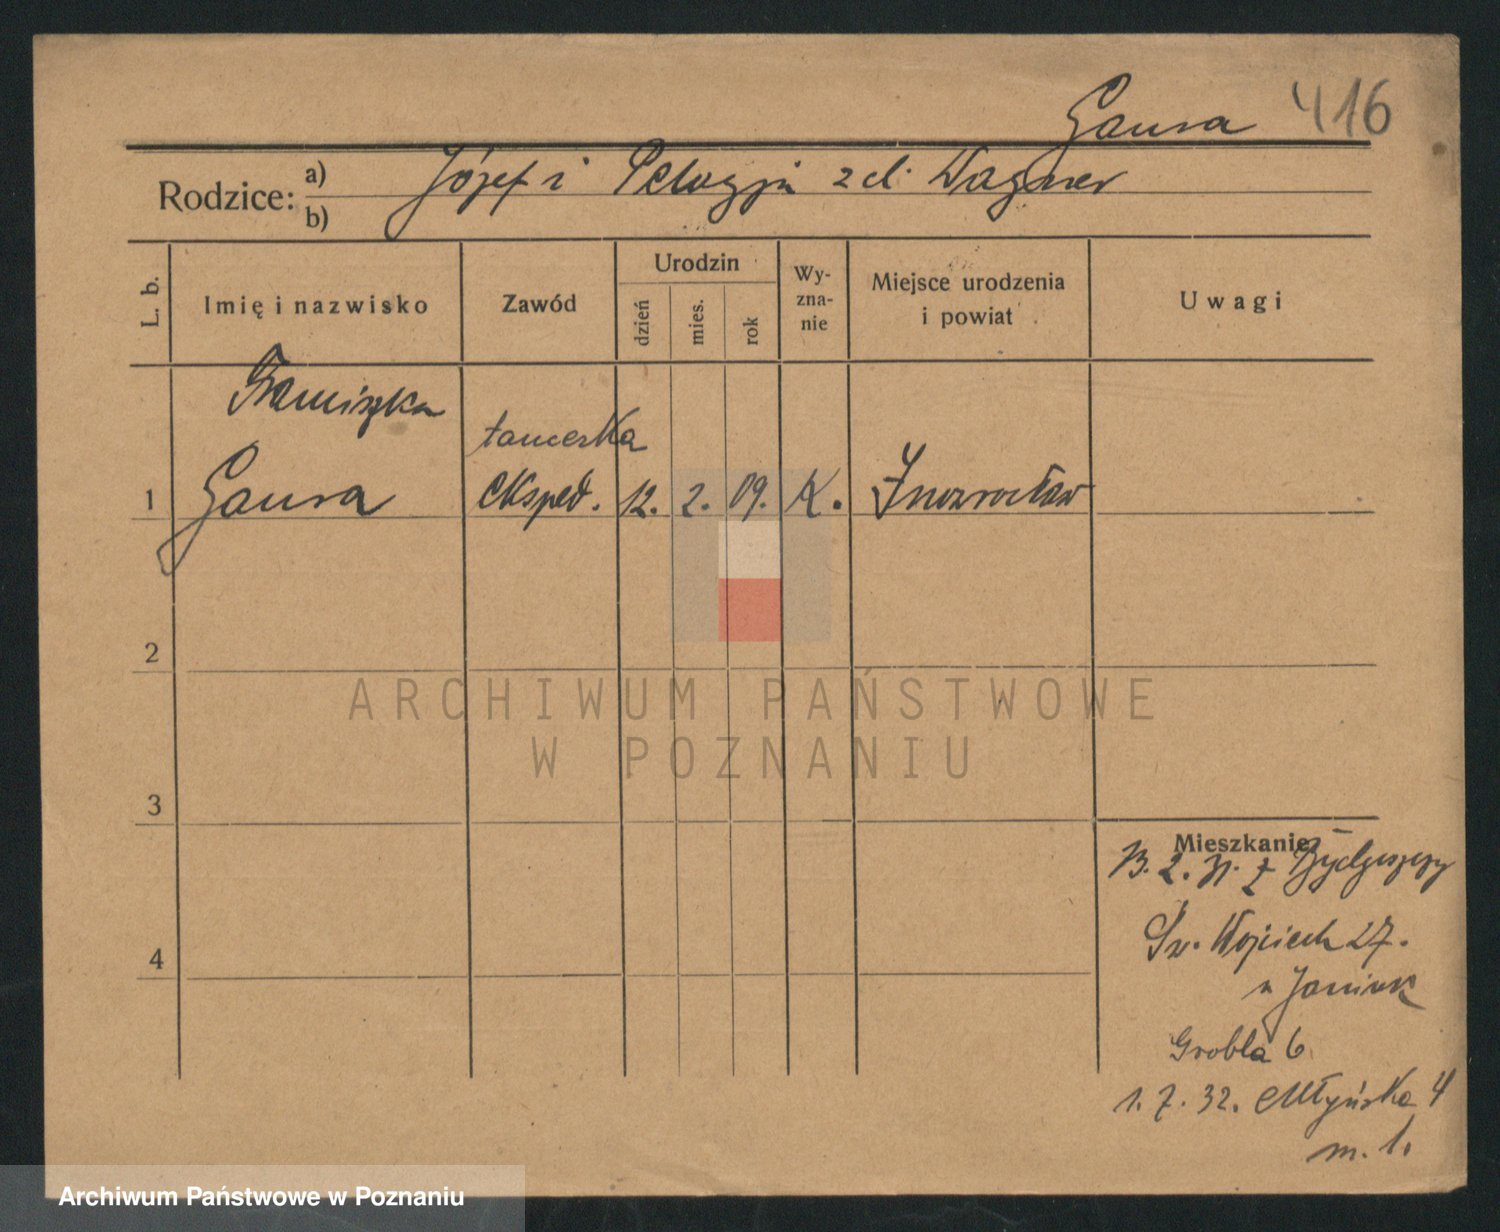 Gausa 416
Rodzice: a) Józef i Pelagja z d. Wagner
b)
L. b. Imię i nazwisko Zawód Urodzin dzień mies. rok Wy-zna-nie Miejsce urodzenia i powiat Uwagi
Franciszka
tancerka
1 Gausa eksped. 12. 2. 09. K. Inowrocław
2
ARCHIWUM PAŃSTWOWE
W POZNANIU
3
Mieszkanie
z Bydgoszczy
4
Św. Wojciech 27.
u Janiak
Grobla 6
1. 7. 32. Młyńska 4
m. 1.
Archiwum Państwowe w Poznaniu